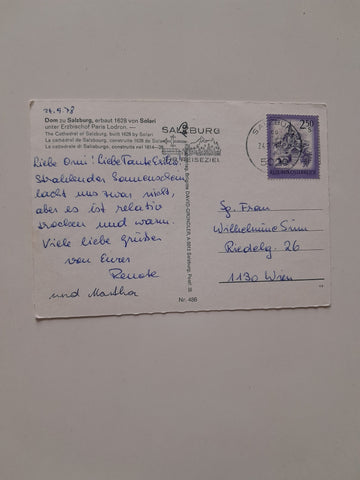 24.9.78
Dom zu Salzburg, erbaut 1628 von Solari
unter Erzbischof Paris Lodron. —
The Cathedral of Salzburg, built 1628 by Solari
La cathédrale de Salzbourg, construite 1628 de
La cattedrale di Salisburgo, construita nel 1614—28
Liebe Omi! Liebe Tante
Strahlender Sonnenschein
lacht uns zwar nicht,
aber es ist relativ
trocken und warm.
Viele liebe Grüße
von Eurer
Renate
und Martha
SALZBURG
REISEZIEL
2.50
REPUBLIK ÖSTERREICH
Sg. Frau
Wilhelmine Simm
Riedelg. 26
1130 Wien
DAVID GRÜNDLER, A-5013 Salzburg, Postf. 26
Nr. 486